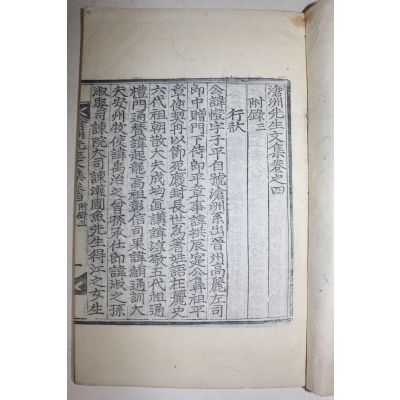 滄洲先生文集卷之四
附錄三
行狀
公諱憕字子平自號滄洲系出晉州高麗左司
郎中贈門下侍郎平章事諱拱辰寔公鼻祖平
章使契丹以節死 封長世 著姓語在麗史
六代祖朝散大夫成均直講諱 五代祖通
禮門通 諱起龍高祖彰信司果諱鮪通訓大
夫安州牧使諱禹治之曾孫承仕郎諱淑之孫
淑娶司諫院大司諫灌圃魚先生得江之女生
滄洲先生文集 卷四附錄三 一